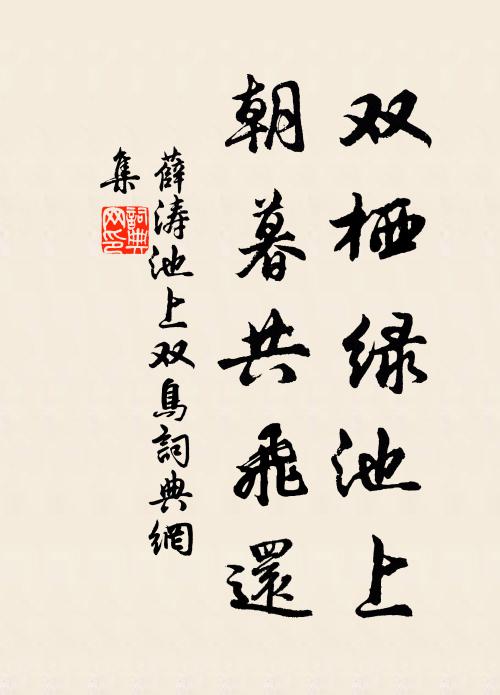 双栖绿池上
朝暮共飛還
薛涛池上双鳥詞典網
集
詞典网印